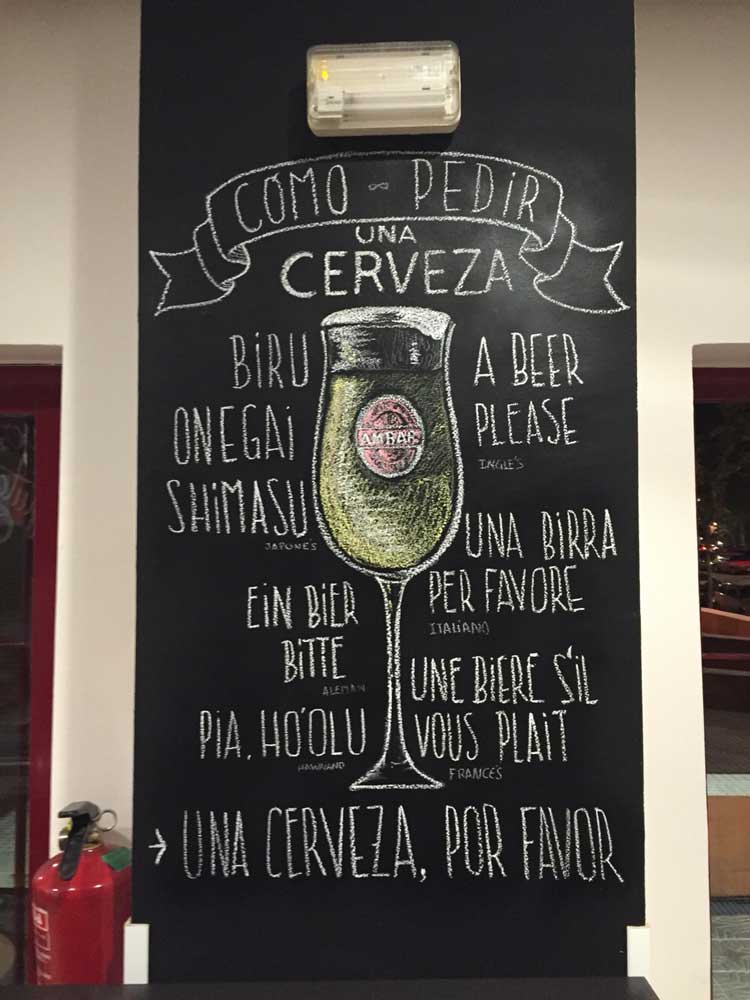 CÓMO - PEDIR
UNA
CERVEZA
BIRU
ONEGAI
SHIMASU
JAPONÉS
A BEER
PLEASE
INGLÉS
AMBAR
UNA BIRRA
PER FAVORE
ITALIANO
EIN BIER
BITTE
ALEMAN
UNE BIERE S'IL
VOUS PLAIT
FRANCÉS
PIA, HO'OLU
HAWAIANO
→ UNA CERVEZA, POR FAVOR